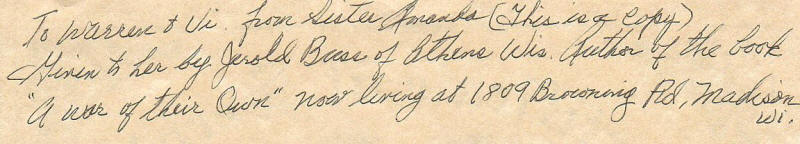 To Warren & Vi. from Sister Amanda (This is a copy)
Given to her by Jerold Buss of Athens Wis. Author of the book
"A war of their Own" now living at 1809 Browning Rd, Madison
Wi.